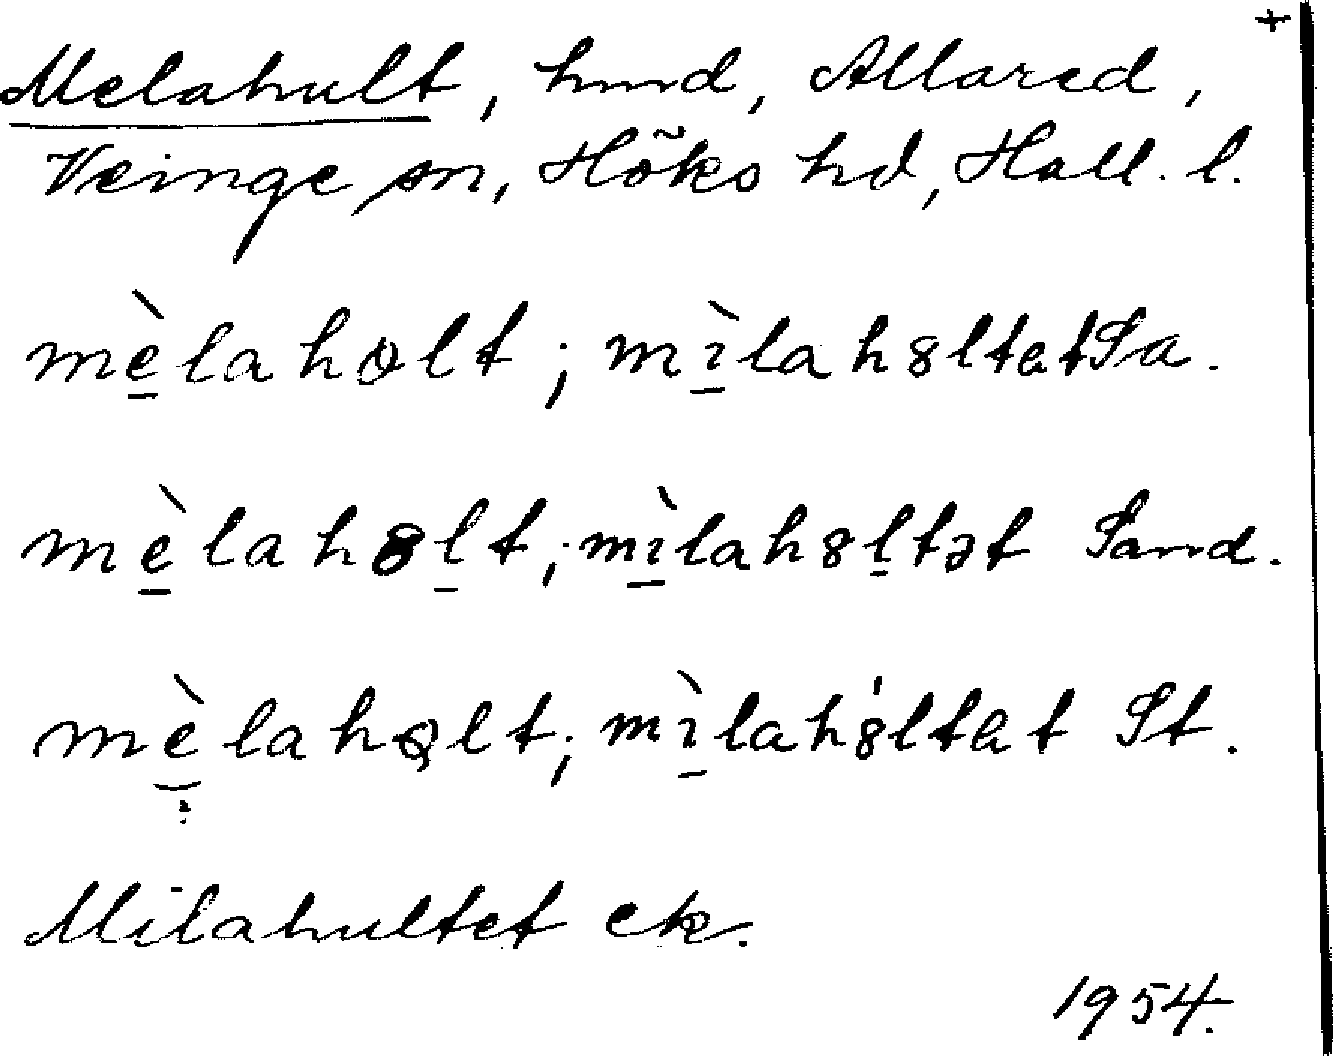 +
Melahult, hmd, Allared,
Veinge sn, Höks hd, Hall. l.
mè̱laholt; mì̱lah8ltat Sa.
mè̱lah8ḻt; mì̱lah8ḻtət Sand.
mèlahǫlt; mì̱lah8́ltat St.
Milahultet ek.
1954.